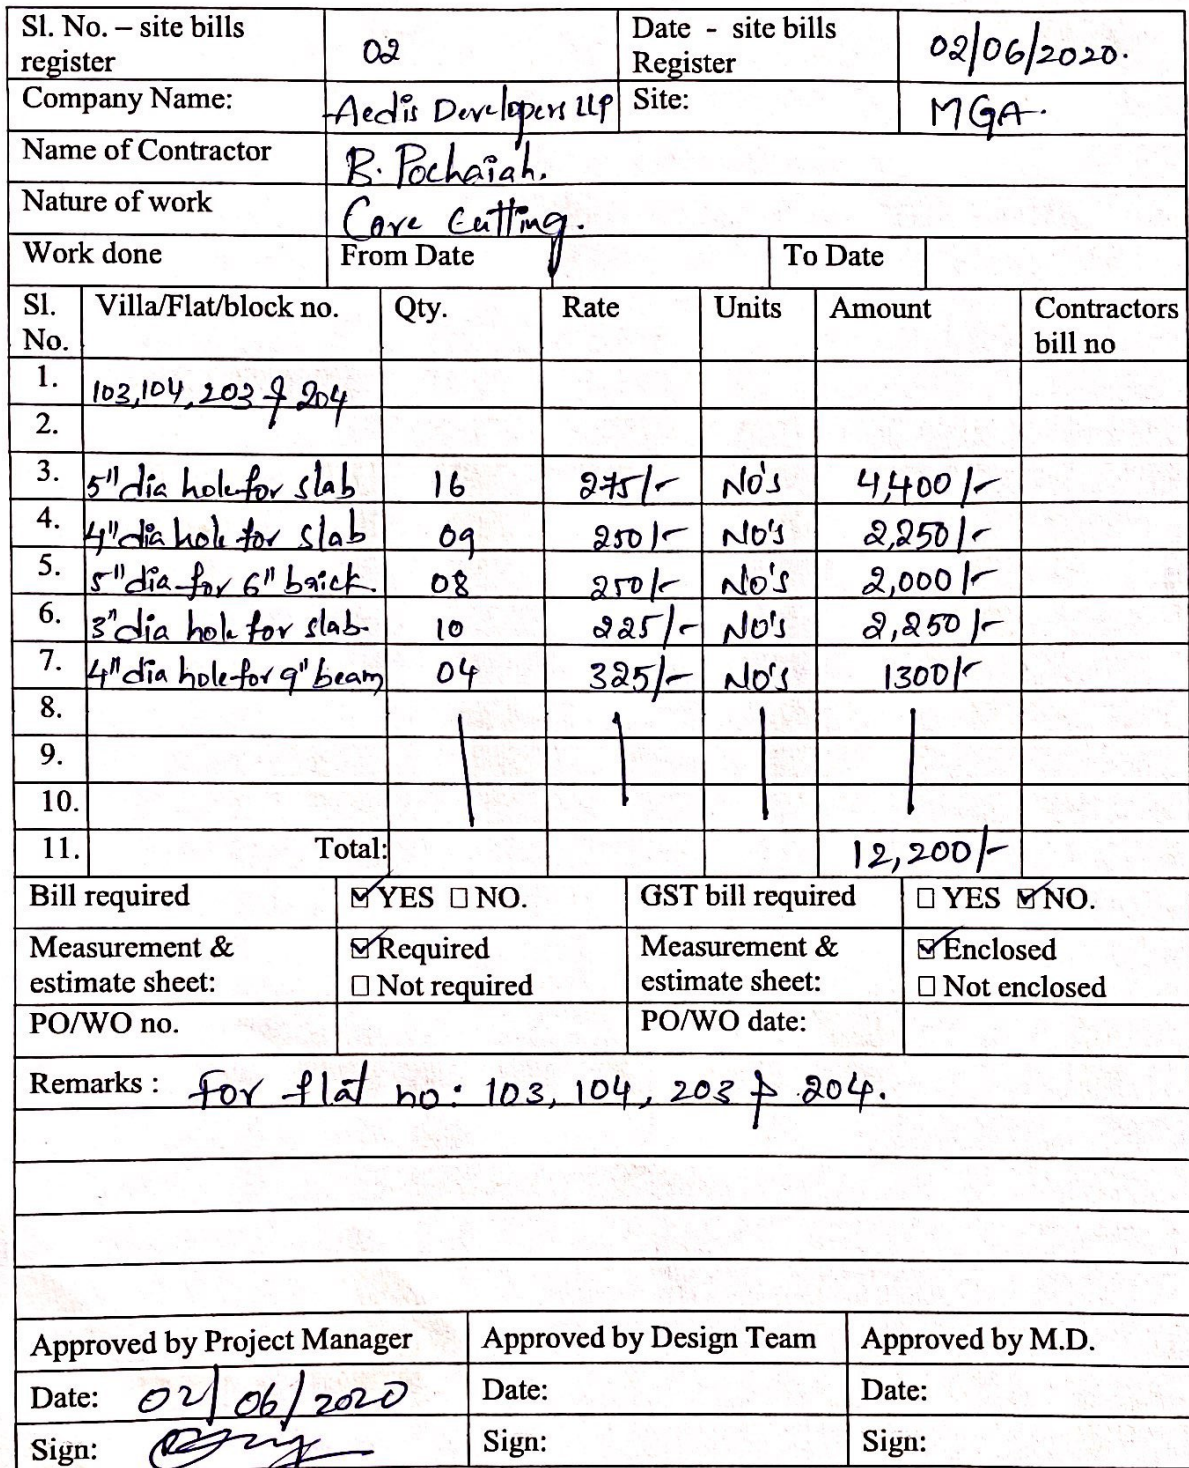 Sl. No. – site bills register 02 Date - site bills Register 02/06/2020.
Company Name: Aedis Developers LLP Site: MGA.
Name of Contractor B. Pochaiah.
Nature of work Core Cutting.
Work done From Date To Date
Sl. No. Villa/Flat/block no. Qty. Rate Units Amount Contractors bill no
1. 103,104,203 & 204
2.
3. 5" dia hole for slab 16 275/- No's 4,400/-
4. 4" dia hole for slab 09 250/- No's 2,250/-
5. 5" dia for 6" brick. 08 250/- No's 2,000/-
6. 3" dia hole for slab. 10 225/- No's 2,250/-
7. 4" dia hole for 9" beam 04 325/- No's 1300/-
8.
9.
10.
11. Total: 12,200/-
Bill required ☑ YES ☐ NO. GST bill required ☐ YES ☑ NO.
Measurement & estimate sheet: ☑ Required ☐ Not required Measurement & estimate sheet: ☑ Enclosed ☐ Not enclosed
PO/WO no. PO/WO date:
Remarks : For flat no: 103, 104, 203 & 204.
Approved by Project Manager Approved by Design Team Approved by M.D.
Date: 02/06/2020 Date: Date:
Sign: Sign: Sign: